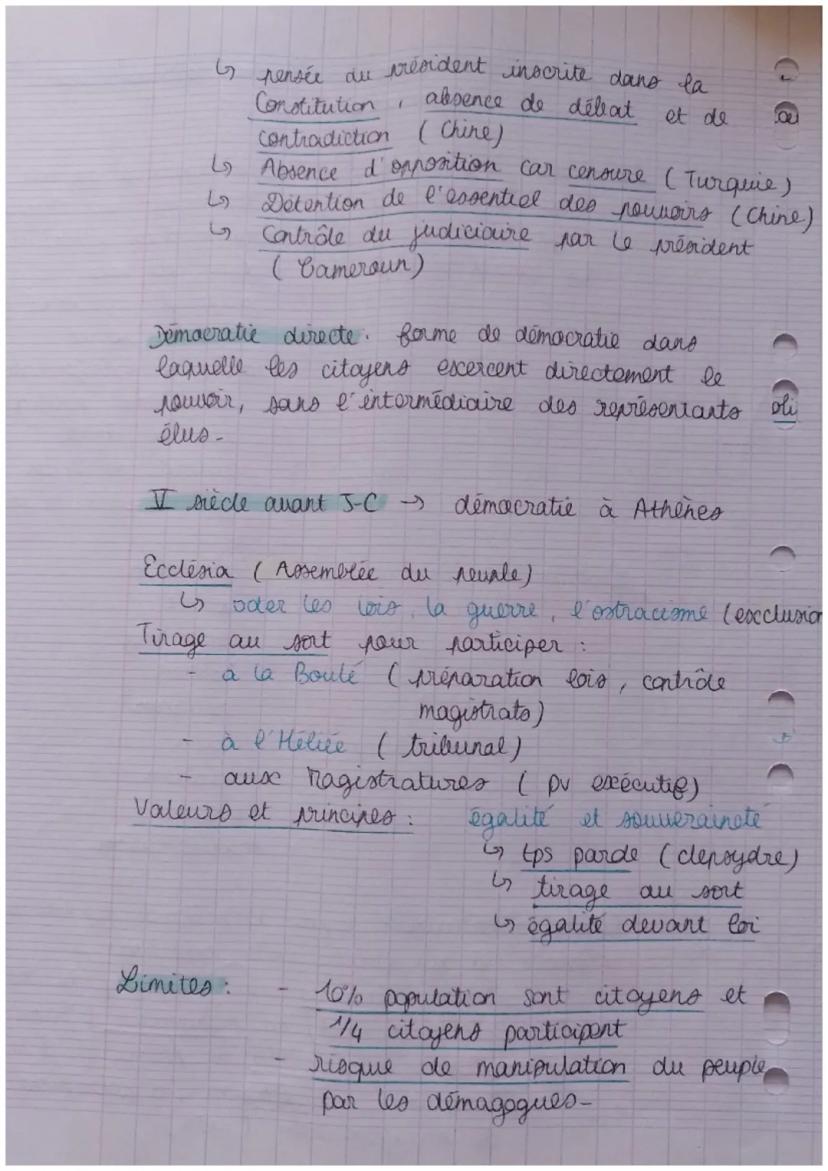 ↳ pensée du président inscrite dans la
Constitution, absence de débat et de
contradiction (Chine)
↳ Absence d'opposition car censure (Turquie)
↳ Détention de l'essentiel des pouvoirs (Chine)
↳ Contrôle du judiciaire par le président
(Cameroun)
Démocratie directe : forme de démocratie dans
laquelle les citoyens excercent directement le
pouvoir, sans l'intermédiaire des représentants
élus-
V siècle avant J-C → démocratie à Athènes
Ecclésia (Assemblée du peuple)
↳ voter les lois, la guerre, l'ostracisme (excclusion
Tirage au sort pour participer :
- à la Boulé (préparation lois, contrôle
magistrats)
- à l'Héliée (tribunal)
- aux Magistratures (pv exécutif)
Valeurs et principes : égalité et souveraineté
↳ tps parde (clepsydre)
↳ tirage au sort
↳ égalité devant loi
Limites :
- 10% population sont citoyens et
1/4 citoyens participent
- risque de manipulation du peuple
par les démagogues-